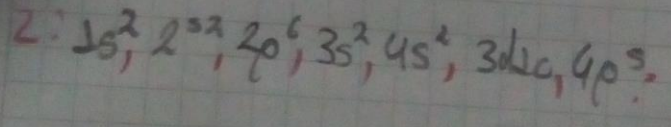 2: 1s², 2s², 2p⁶, 3s², 4s², 3d10, 4p⁵.